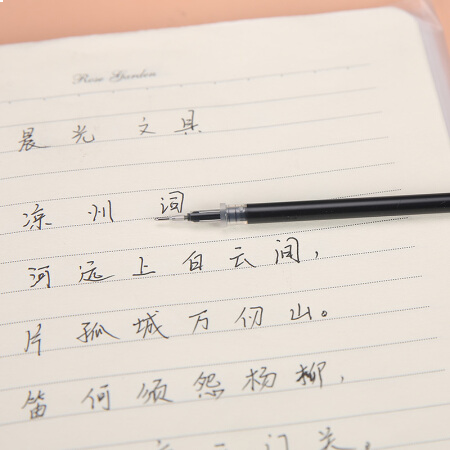 Rose Garden
晨光 文具
凉州词
河远上白云间，
片孤城万仞山。
笛何须怨杨柳，
门关。